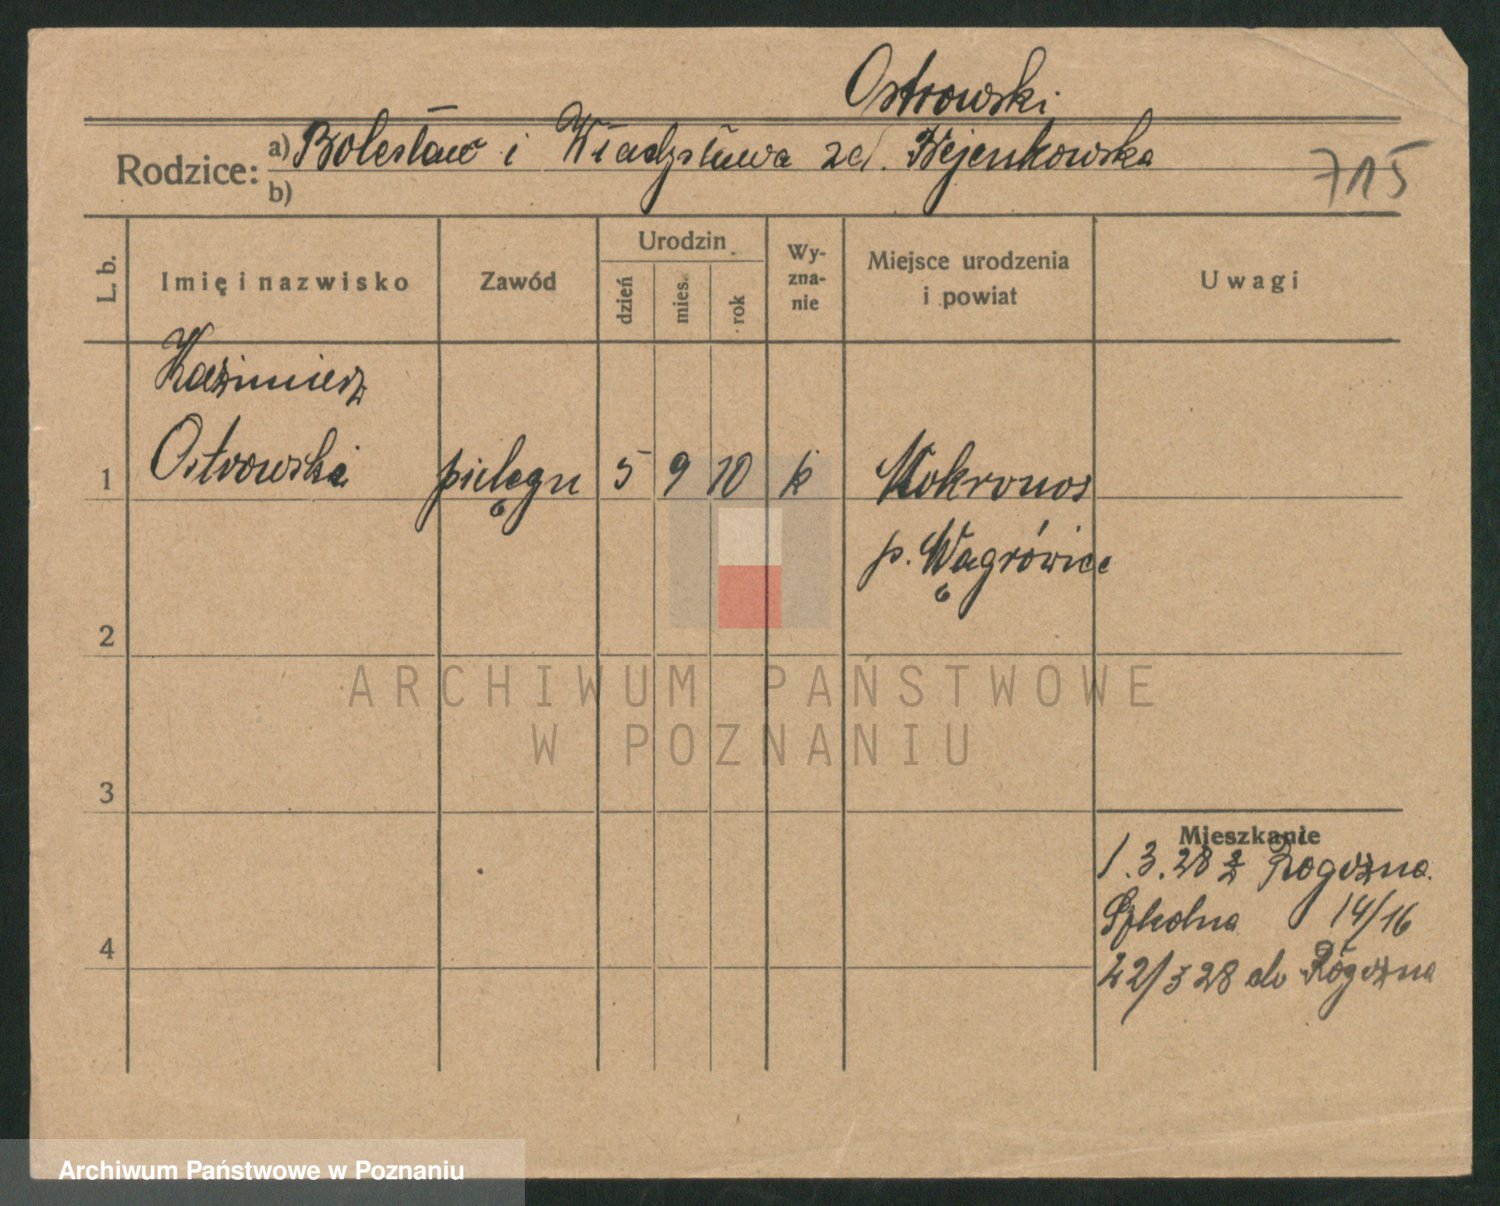 Ostrowski
Rodzice: a) Bolesław i Władysława zd. Bejenkowska
b)
715
L. b.
Imię i nazwisko
Zawód
Urodzin
dzień
mies.
rok
Wy-
zna-
nie
Miejsce urodzenia
i powiat
Uwagi
Kazimierz
1 Ostrowski pielęgn 5 9 10 k Mokronos
p. Wągrówiec
2
ARCHIWUM PAŃSTWOWE
W POZNANIU
3
Mieszkanie
1.3.28 z Rogoźna
Szkolna 14/16
4
22/3 28 do Rogoźna
Archiwum Państwowe w Poznaniu